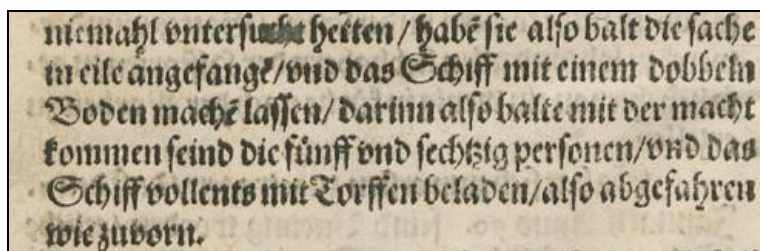 niemahl vntersucht hetten / habẽ sie also balt die sache
in eile angefangẽ/vnd das Schiff mit einem dobbeln
Boden machẽ lassen/ darinn also balte mit der macht
kommen seind die fünff vnd sechtzig personen/vnd das
Schiff vollents mit Torffen beladen/also abgefahren
wie zuvorn.